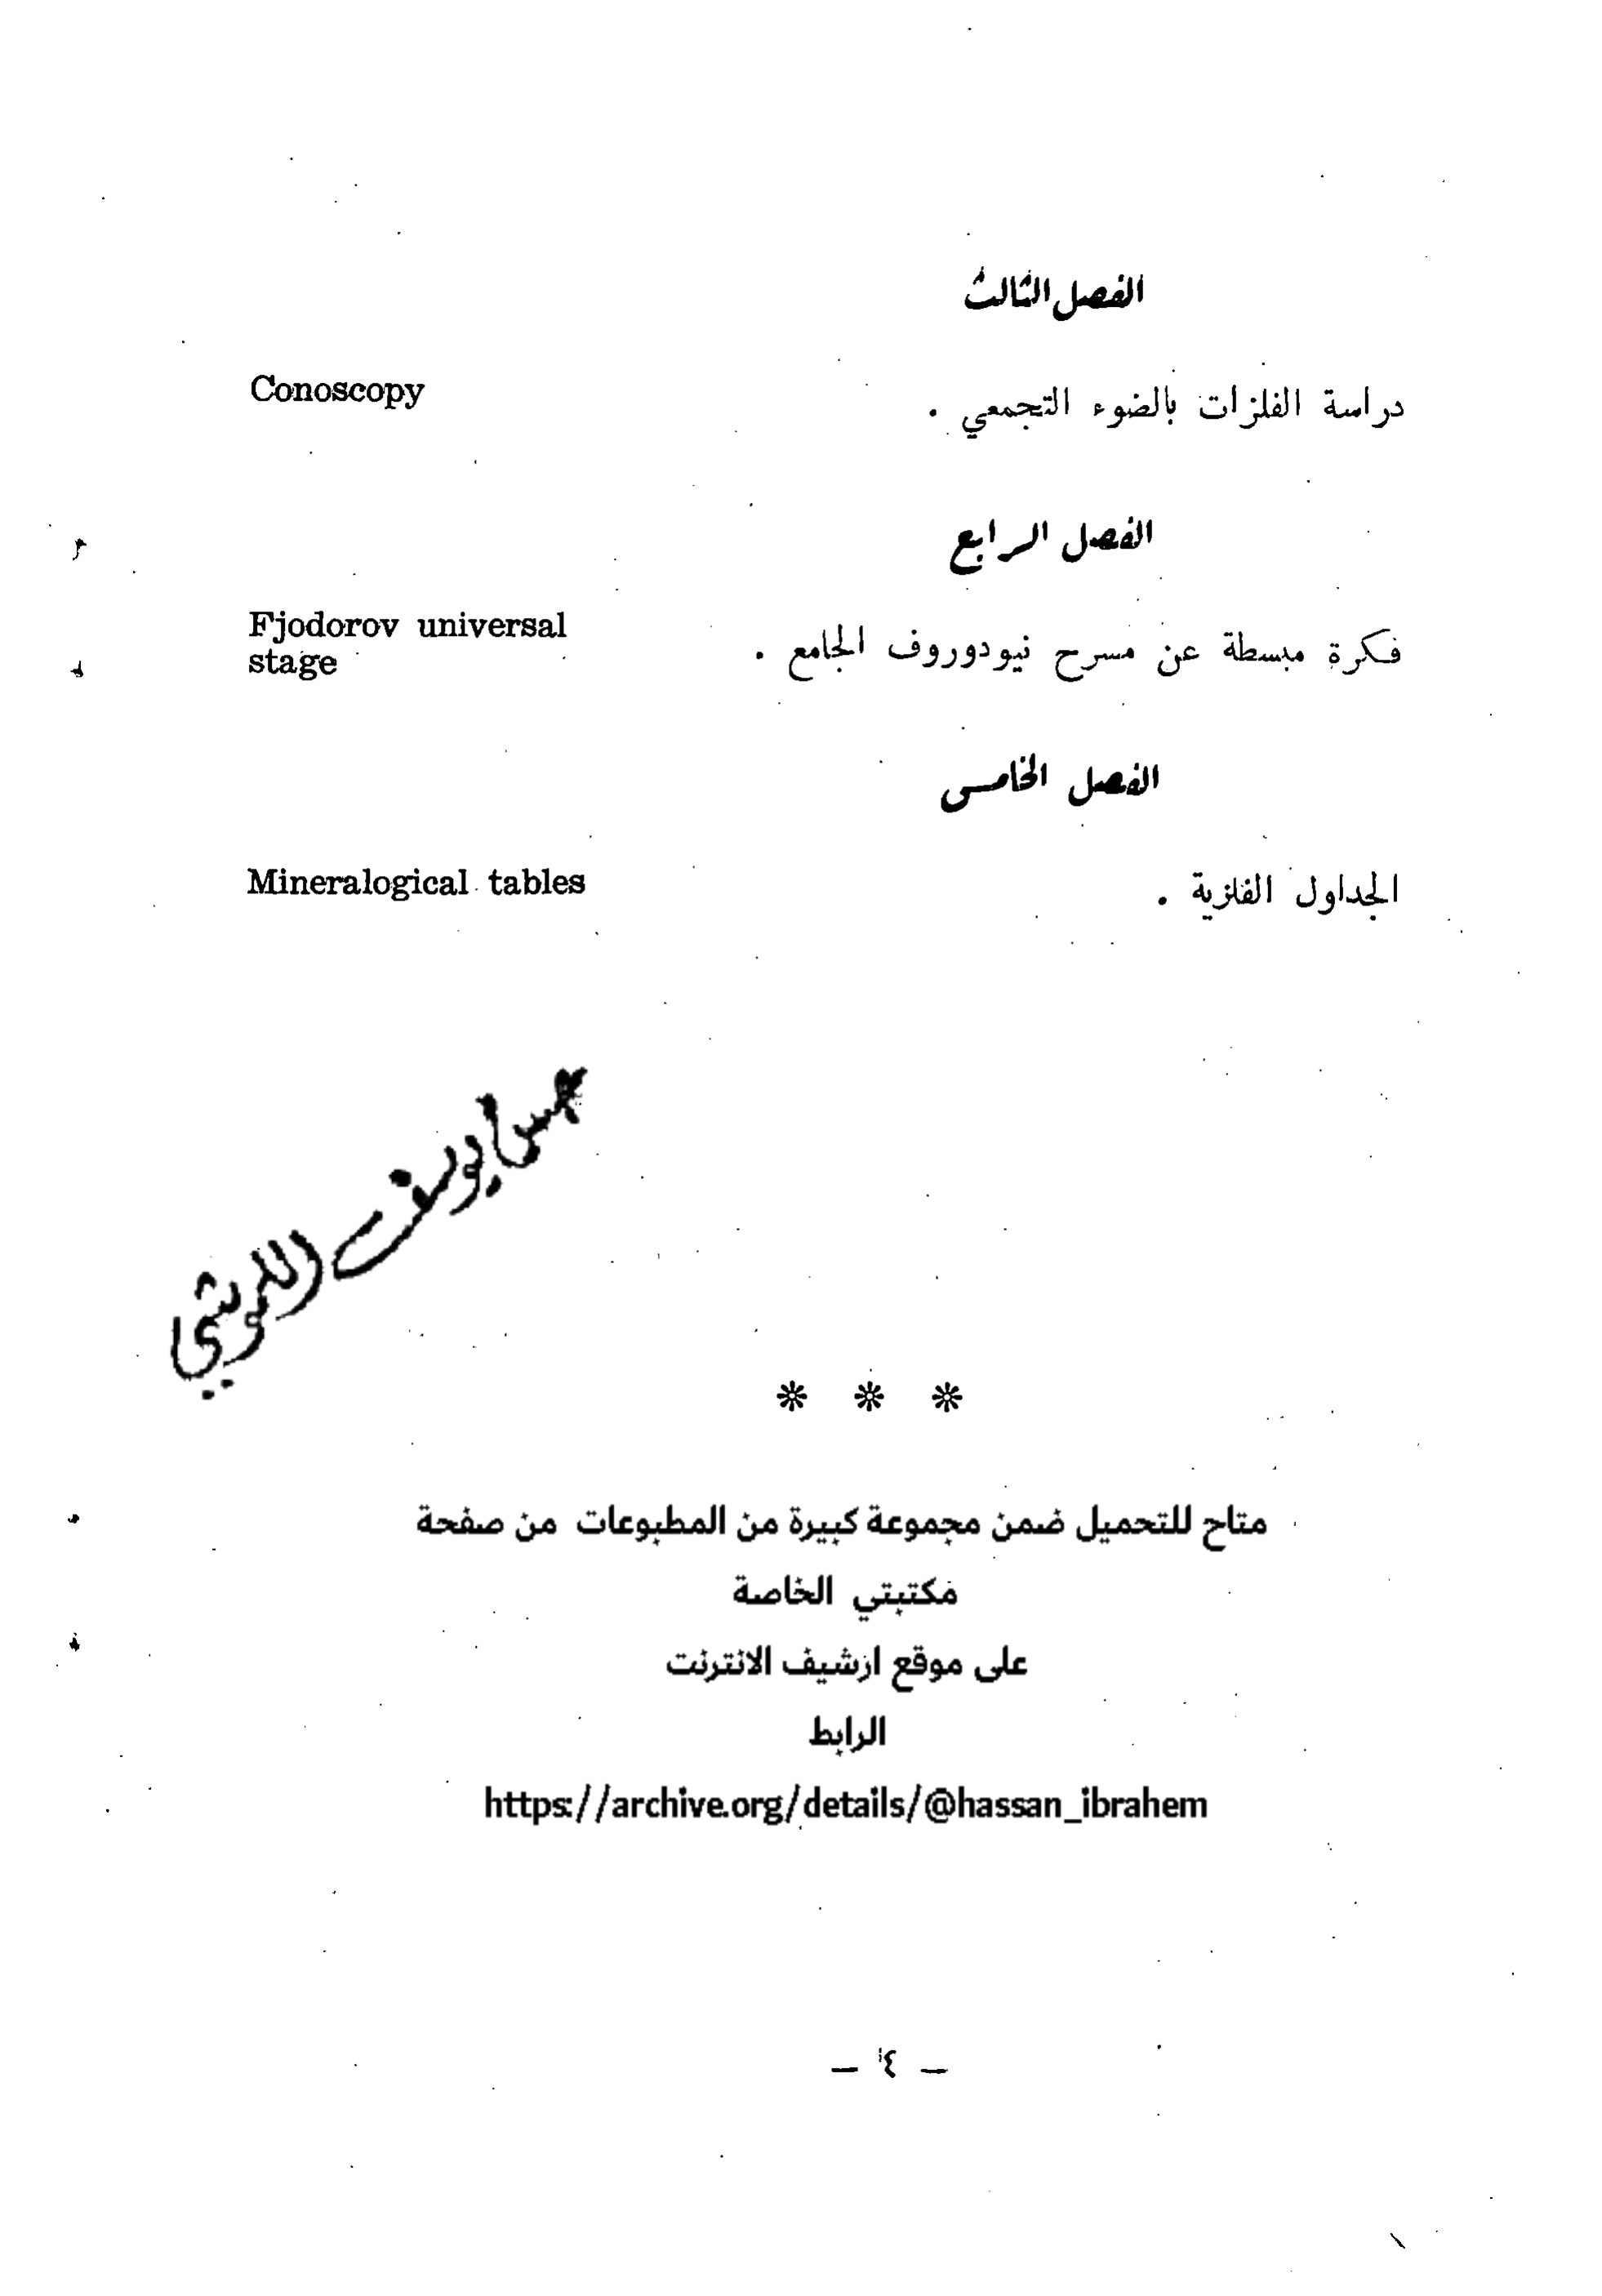 الفصل الثالث
دراسة الفلزات بالضوء التجمعي . Conoscopy
الفصل الرابع
فكرة مبسطة عن مسرح نيودوروف الجامع . Fjodorov universal
stage
الفصل الخامس
الجداول الفلزية . Mineralogical tables
يوسف
* * *
متاح للتحميل ضمن مجموعة كبيرة من المطبوعات من صفحة
مكتبتي الخاصة
على موقع ارشيف الانترنت
الرابط
https://archive.org/details/@hassan_ibrahem
— ٤ —